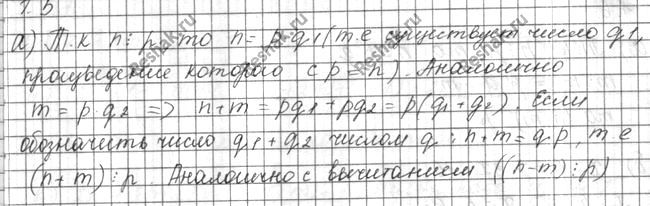 7.5
а) Т.к n⋮p, то n = p·q1 (т.е существует число q1,
произведение которого с p = n). Аналогично
m = p·q2 => n+m = pq1 + pq2 = p(q1+q2). Если
обозначить число q1 + q2 числом q : n+m = qp, т.е
(n+m)⋮p. Аналогично с вычитанием ((n-m)⋮p)
Reshak.ru